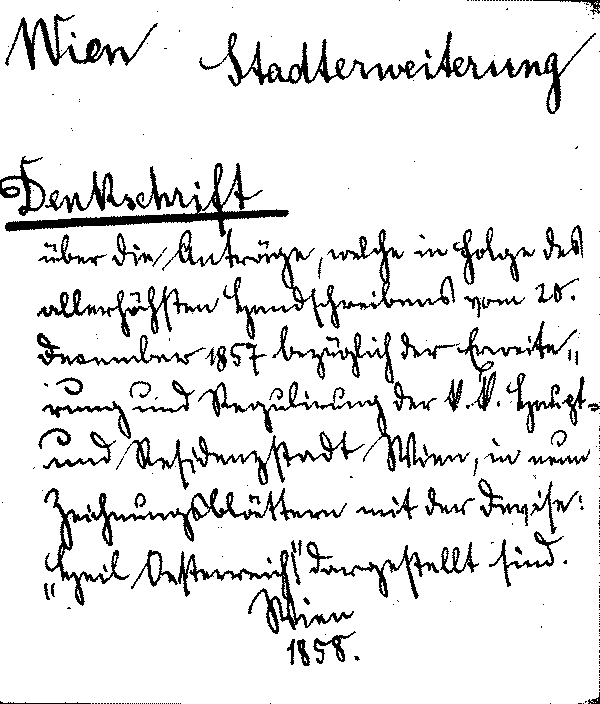 Wien Stadterweiterung
Denkschrift
über die Anträge, welche in Folge des
allerhöchsten Handschreibens vom 20.
Dezember 1857 bezüglich der Erweite„
rung und Regulirung der k.k. Haupt-
und Residenzstadt Wien, in neun
Zeichnungsblättern mit der Devise:
„Heil Oesterreich!" dargestellt sind.
Wien
1858.